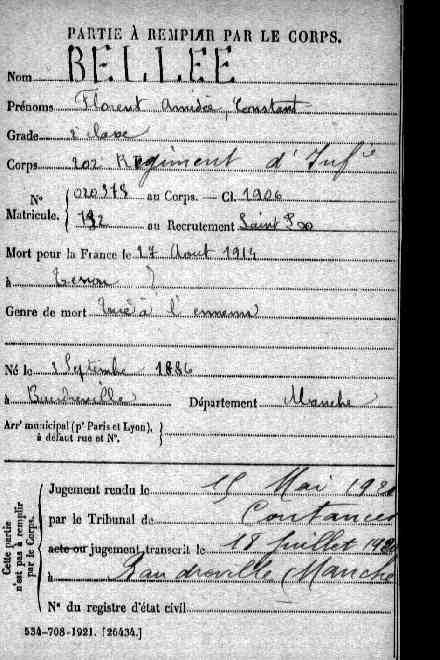 PARTIE À REMPLIR PAR LE CORPS.
Nom BELLEE
Prénoms Florent Amédée, Constant
Grade 2e classe
Corps 202 Régiment d'Infie
Nº Matricule. 020373 au Corps. — Cl. 1906
792 au Recrutement Saint Lo
Mort pour la France le 27 Aout 1914
à
Genre de mort Tué à l'ennemi
Né le Septembre 1886
à Baudreville Département Manche
Arrt municipal (pr Paris et Lyon), à défaut rue et Nº.
Cette partie n'est pas à remplir par le Corps.
Jugement rendu le 15 Mai 1920
par le Tribunal de Coutances
acte ou jugement transcrit le 18 Juillet 1920
à Baudreville (Manche
Nº du registre d'état civil
534-708-1921. [26434.]